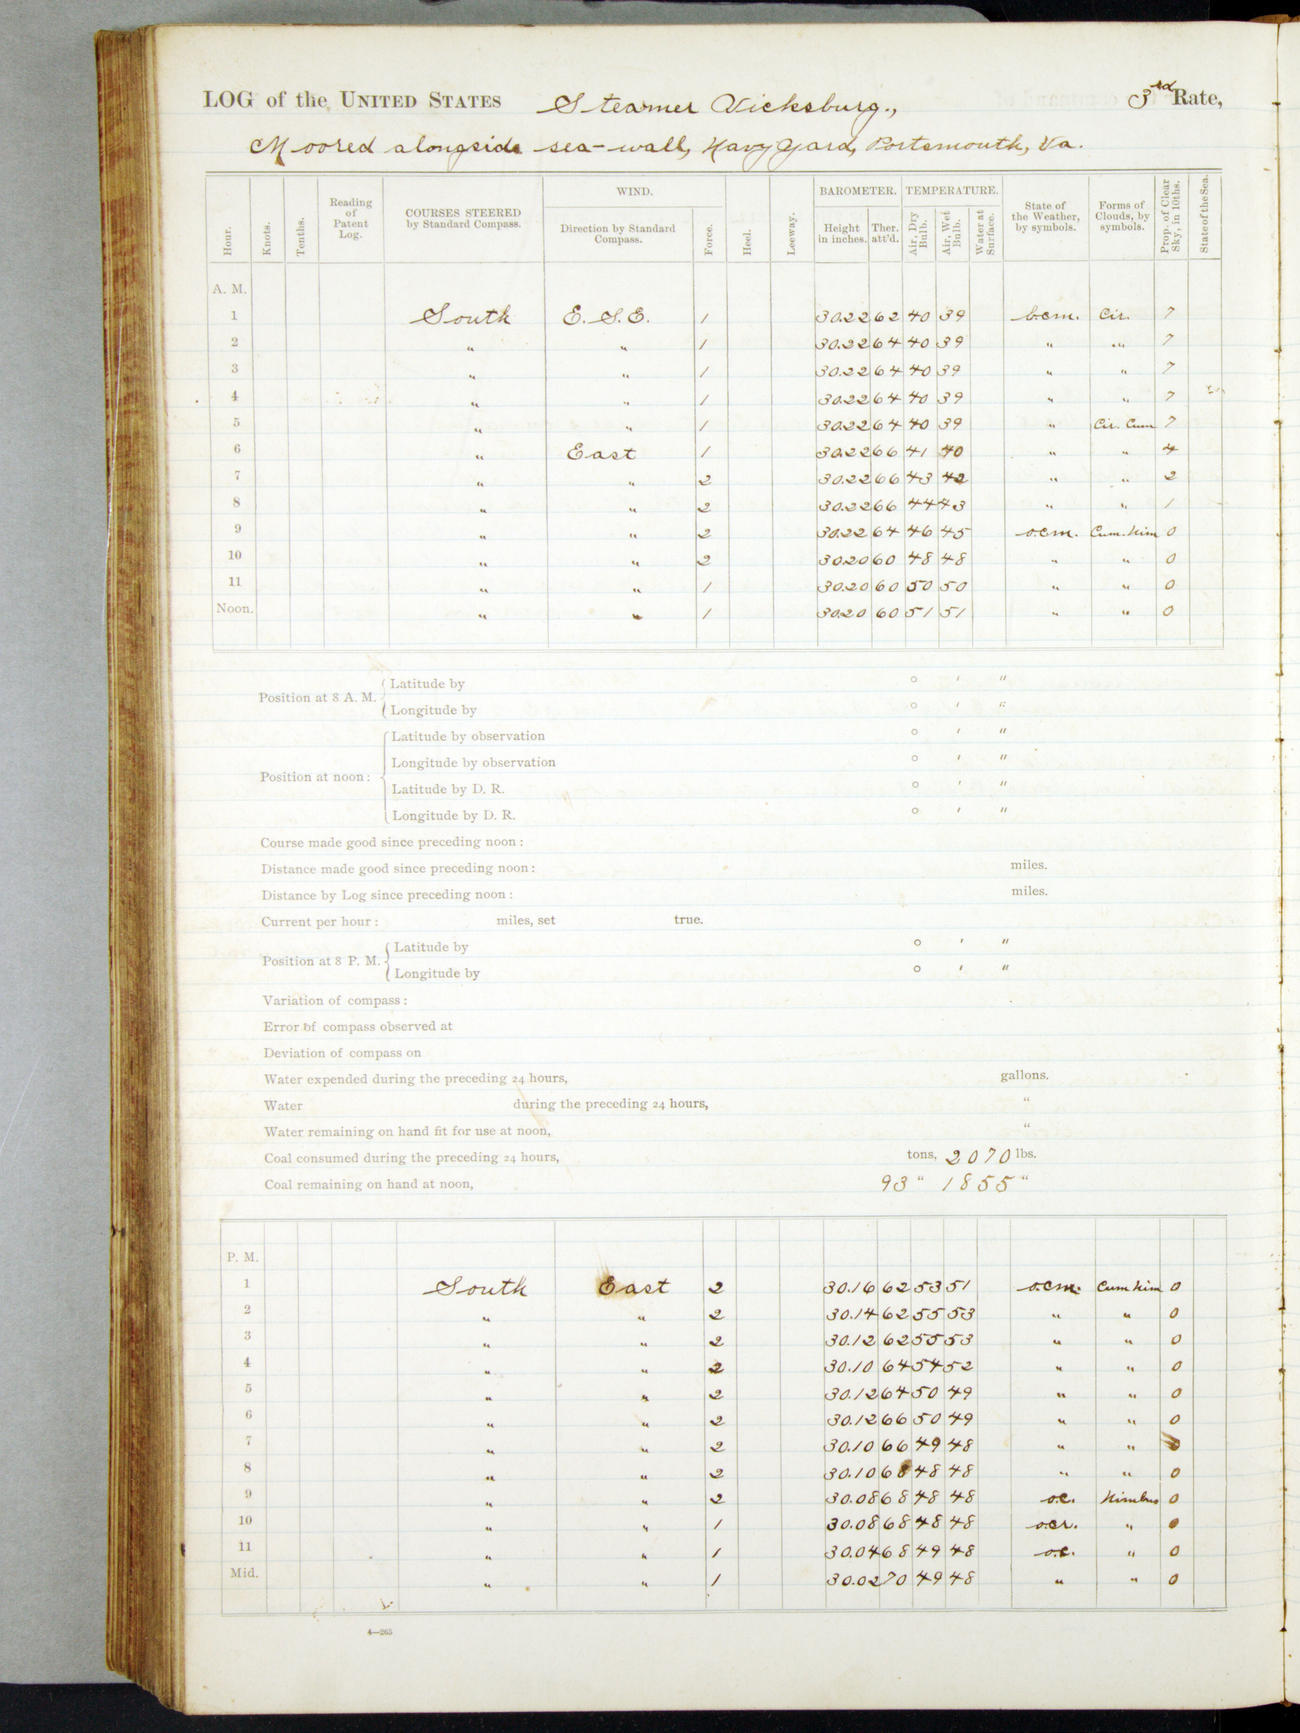 LOG of the UNITED STATES Steamer Vicksburg., 3rd Rate,
Moored alongside sea-wall, Navy Yard, Portsmouth, Va.
Hour. Knots. Tenths. Reading of Patent Log. COURSES STEERED by Standard Compass. WIND. Direction by Standard Compass. Force. Heel. Leeway. BAROMETER. Height in inches. Ther. att'd. TEMPERATURE. Air, Dry Bulb. Air, Wet Bulb. Water at Surface. State of the Weather, by symbols. Forms of Clouds, by symbols. Prop. of Clear Sky, in 10ths. State of the Sea.
A. M.
1 South E.S.E. 1 30.22 62 40 39 b.c.m. Cir. 7
2 " " 1 30.22 64 40 39 " " 7
3 " " 1 30.22 64 40 39 " " 7
4 " " 1 30.22 64 40 39 " " 7
5 " " 1 30.22 64 40 39 " Cir. Cum 7
6 " East 1 30.22 66 41 40 " " 4
7 " " 2 30.22 66 43 42 " " 2
8 " " 2 30.22 66 44 43 " " 1
9 " " 2 30.22 64 46 45 o.c.m. Cum. Nim 0
10 " " 2 30.20 60 48 48 " " 0
11 " " 1 30.20 60 50 50 " " 0
Noon. " " 1 30.20 60 51 51 " " 0
Position at 8 A. M. Latitude by ° ' "
Longitude by ° ' "
Position at noon: Latitude by observation ° ' "
Longitude by observation ° ' "
Latitude by D. R. ° ' "
Longitude by D. R. ° ' "
Course made good since preceding noon:
Distance made good since preceding noon: miles.
Distance by Log since preceding noon: miles.
Current per hour: miles, set true.
Position at 8 P. M. Latitude by ° ' "
Longitude by ° ' "
Variation of compass:
Error of compass observed at
Deviation of compass on
Water expended during the preceding 24 hours, gallons.
Water during the preceding 24 hours, "
Water remaining on hand fit for use at noon, "
Coal consumed during the preceding 24 hours, tons, 2070 lbs.
Coal remaining on hand at noon, 93 " 1855 "
P. M.
1 South East 2 30.16 62 53 51 o.c.m. Cum Nim 0
2 " " 2 30.14 62 55 53 " " 0
3 " " 2 30.12 62 55 53 " " 0
4 " " 2 30.10 64 54 52 " " 0
5 " " 2 30.12 64 50 49 " " 0
6 " " 2 30.12 66 50 49 " " 0
7 " " 2 30.10 66 49 48 " " 0
8 " " 2 30.10 68 48 48 " " 0
9 " " 2 30.08 68 48 48 o.c. Nimbus 0
10 " " 1 30.08 68 48 48 o.c.r. " 0
11 " " 1 30.04 68 49 48 o.c. " 0
Mid. " " 1 30.02 70 49 48 " " 0
4—265